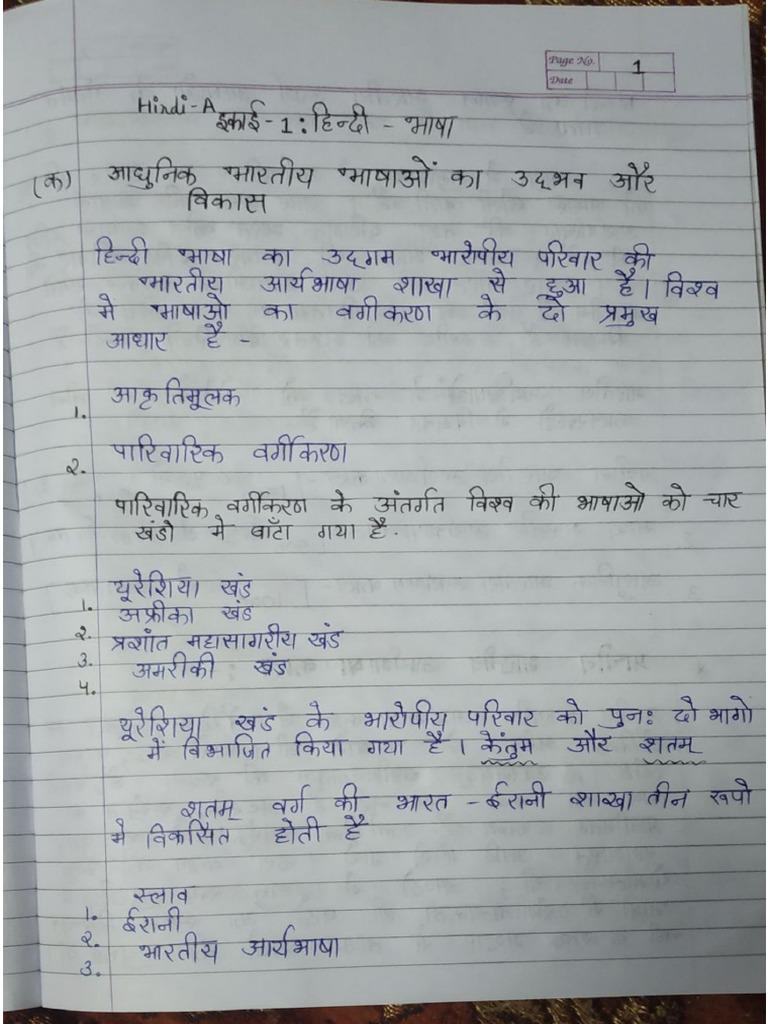 Page No. 1
Date
Hindi-A
इकाई-1: हिन्दी - भाषा
(क) आधुनिक भारतीय भाषाओं का उद्भव और
विकास
हिन्दी भाषा का उद्गम भारोपीय परिवार की
भारतीय आर्यभाषा शाखा से हुआ है। विश्व
मे भाषाओ का वर्गीकरण के दो प्रमुख
आधार है -
1. आकृतिमूलक
2. पारिवारिक वर्गीकरण
पारिवारिक वर्गीकरण के अंतर्गत विश्व की भाषाओ को चार
खंडो मे बाँटा गया है.
1. यूरेशिया खंड
2. अफ्रीका खंड
3. प्रशांत महासागरीय खंड
4. अमरीकी खंड
यूरेशिया खंड के भारोपीय परिवार को पुनः दो भागो
में विभाजित किया गया है। केंतुम और शतम्
शतम् वर्ग की भारत - ईरानी शाखा तीन रूपो
मे विकसित होती है
1. स्लाव
2. ईरानी
3. भारतीय आर्यभाषा